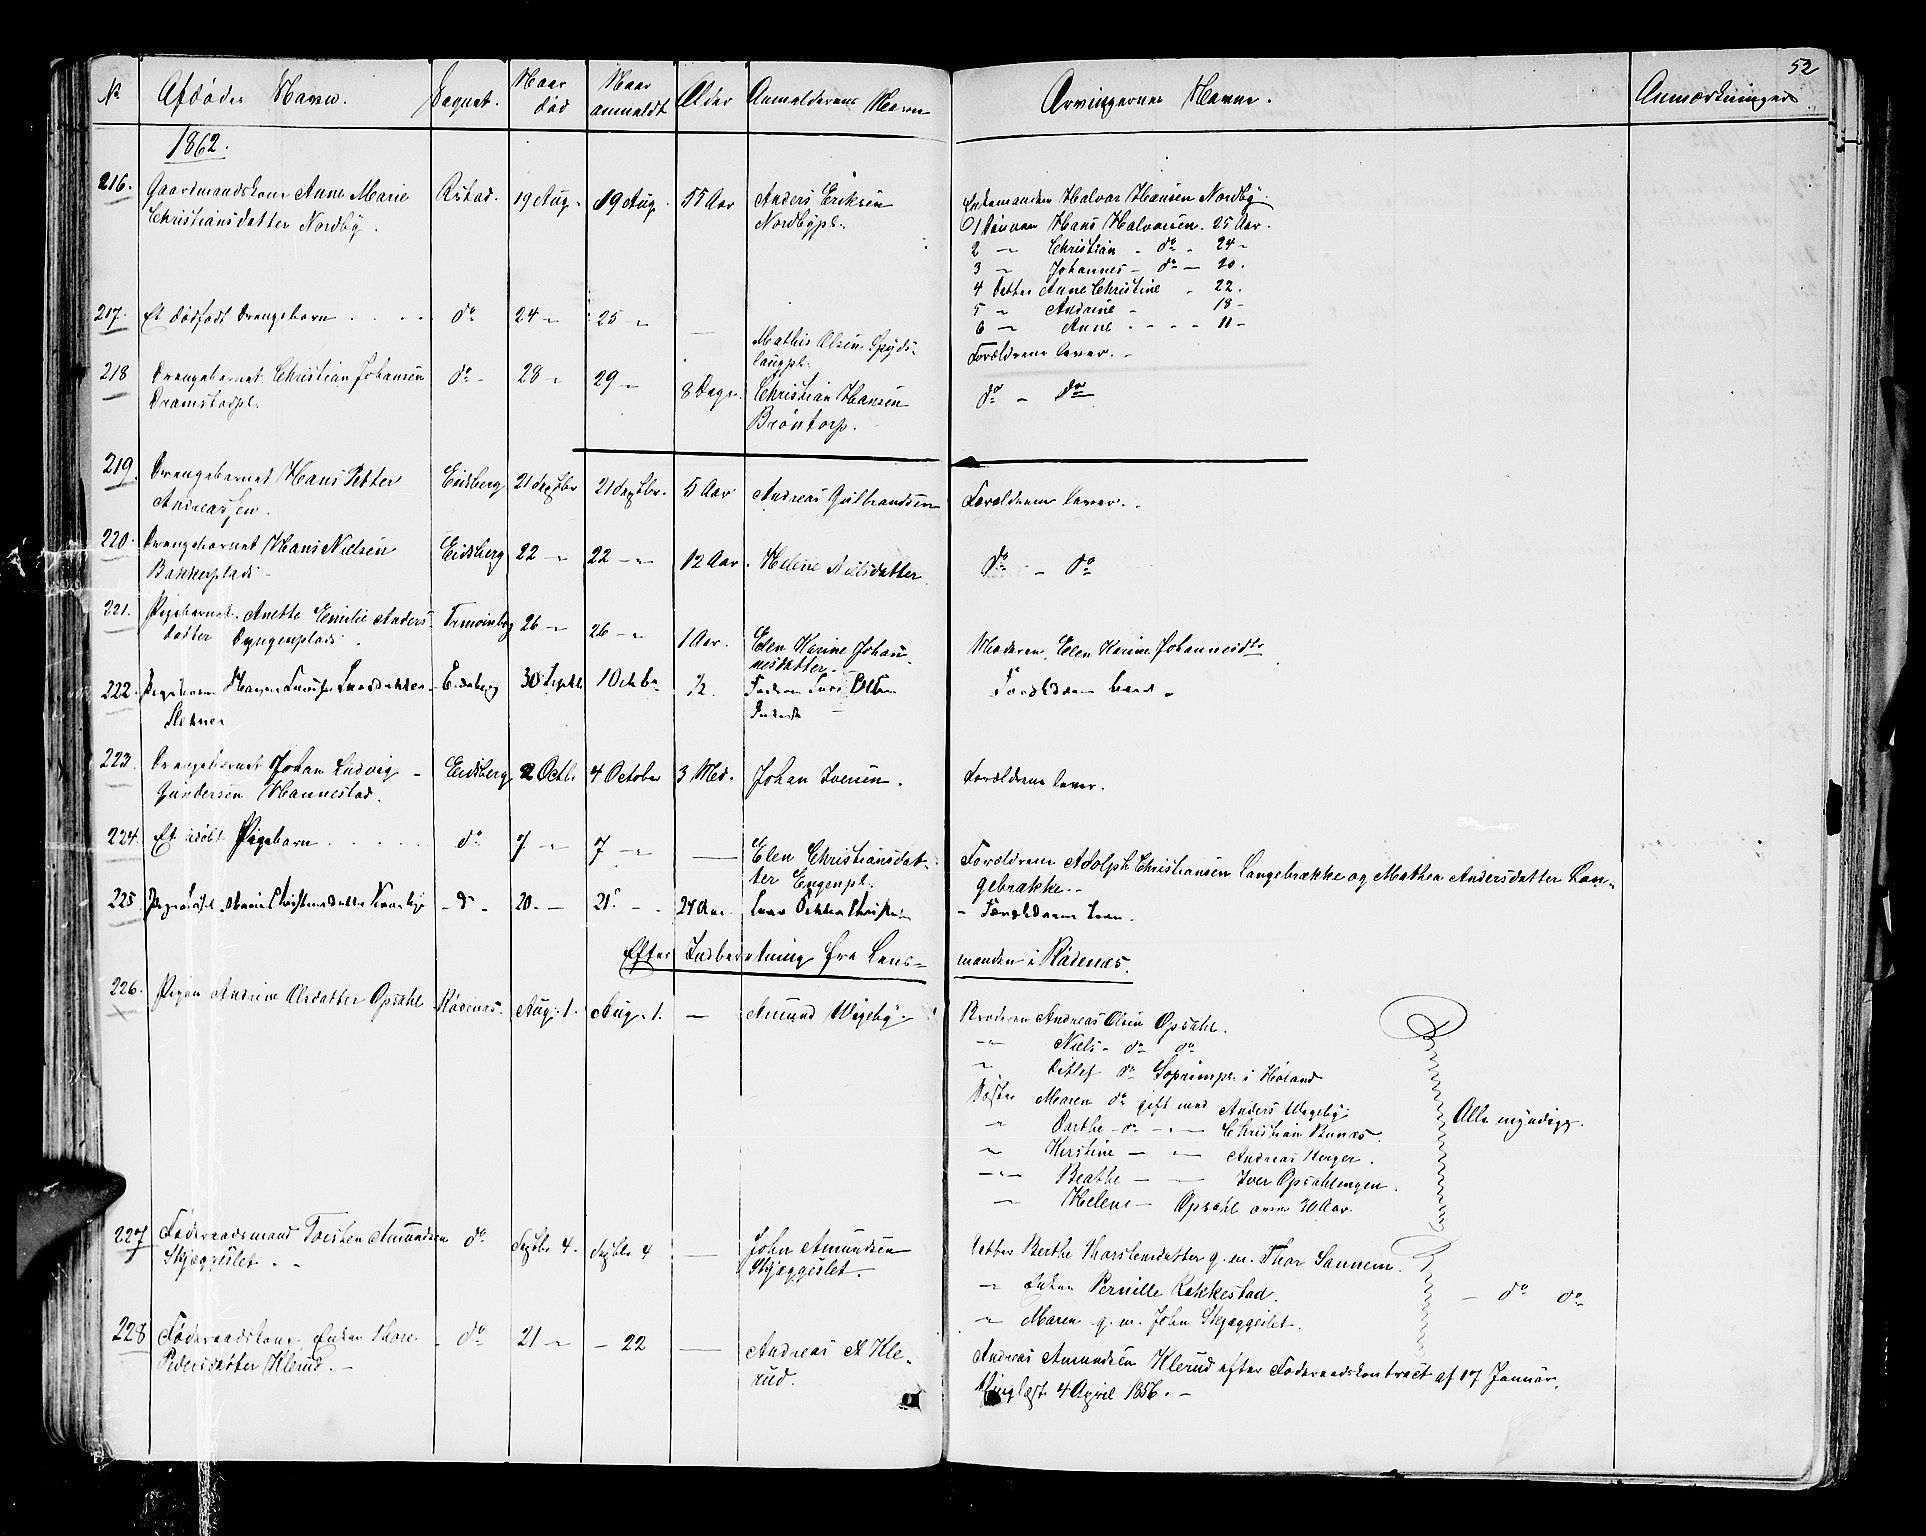 52
No Afdødes Navn. Sognet. Naar død Naar anmeldt Alder Anmelderens Navn Arvingernes Navne. Anmærkninger
1862.
216. Gaardmandskone Anne Marie Christiansdatter Nordby. 19 Aug. 19 Aug. 55 Aar Anders Eriksen Nordbypl. Enkemanden Halvor Hansen Nordby.
1 Sønnen Hans Halvorsen. 25 Aar.
2 " Christian - do - 24 -
3 " Johannes - do - 20.
4 Datter Anne Christine - 22.
5 " Andrine - 18 -
6 " Anne . - - - 11 -
217. Et dødfødt Drengebarn . . . . do 24 " 25 " — Mathis Olsen Forældrene lever. -
218 Drengebarnet Christian Johansen Dramstadpl. do - 28 " 29 " 8 Dage. Christian Hansen Brøntorp. do - do
219. Drengebarnet Hans Petter Andreassen. Eidsberg 21 Septbr 21 Septbr. 5 Aar Andreas Gulbrandsen Forældrene lever. .
220. Drengebarnet Hans Nielsen Bakkerplads - Eidsberg 22 - " 22 - " 12 Aar. Helene Nielsdatter. do - do
221. Pigebarnet Anette Emilie Andersdatter 26 - " 26 - " 1 Aar. Elen Karine Johannesdatter. Moderen, Elen Karine Johannesdtr
222. Pigebarn Maren Larsdatter Eidsberg 30 Septbr 1 Octbr ½ Faderen Lars Forældrene lever -
223. Drengebarnet Johan Ludvig Gundersen Hannestad. - Eidsberg 2 Octbr 4 October 3 Md. Johan Iversen. Forældrene lever.
224. Et udøbt Pigebarn . . . . . do 7 - " 7 - " — Elen Christiansdatter Engenpl. Forældrene Adolph Christiansen Langebrække og Mathea Andersdatter Langebrække. -
225 - do - 20 - - 21 - - 24 Aar. - Forældrene lever.
Efter Indberetning fra Lensmanden i Rødenæs.
226. Pigen Andrine Olsdatter Opsahl Rødenæs. Aug. 1. Aug. 1. — Amund Wegeby. Broderen Andreas Olsen Opsahl.
- " Niels - do do
" Ditlef do i Høland
Søster Maren do gift med Anders Wegeby. Alle myndige.
" Dorthe - do - " - Christian Bunæs.
" Kirstine - " - Andreas Berger.
- " - Beathe - - Iver Opsahlengen.
" Helene - Opsahl over 30 Aar.
227 Føderaadsmand Torsten Amundsen Skjæggeslet. - do Septbr 4. Septbr 4 — John Amundsen Skjæggeslet. Datter Berthe Thorstensdatter g. m. Thor Sannem.
- " Enken Pernille Rakkestad. - do do
" Maren g. m. John Skjæggeslet.
228 Føderaadskone, Enken Thore Pedersdatter Klerud. - - do - 21 - " - 22 — Andreas A Klerud. Andreas Amundsen Klerud efter Føderaadskontract af 17 Januar, thinglæst 4 April 1856. -